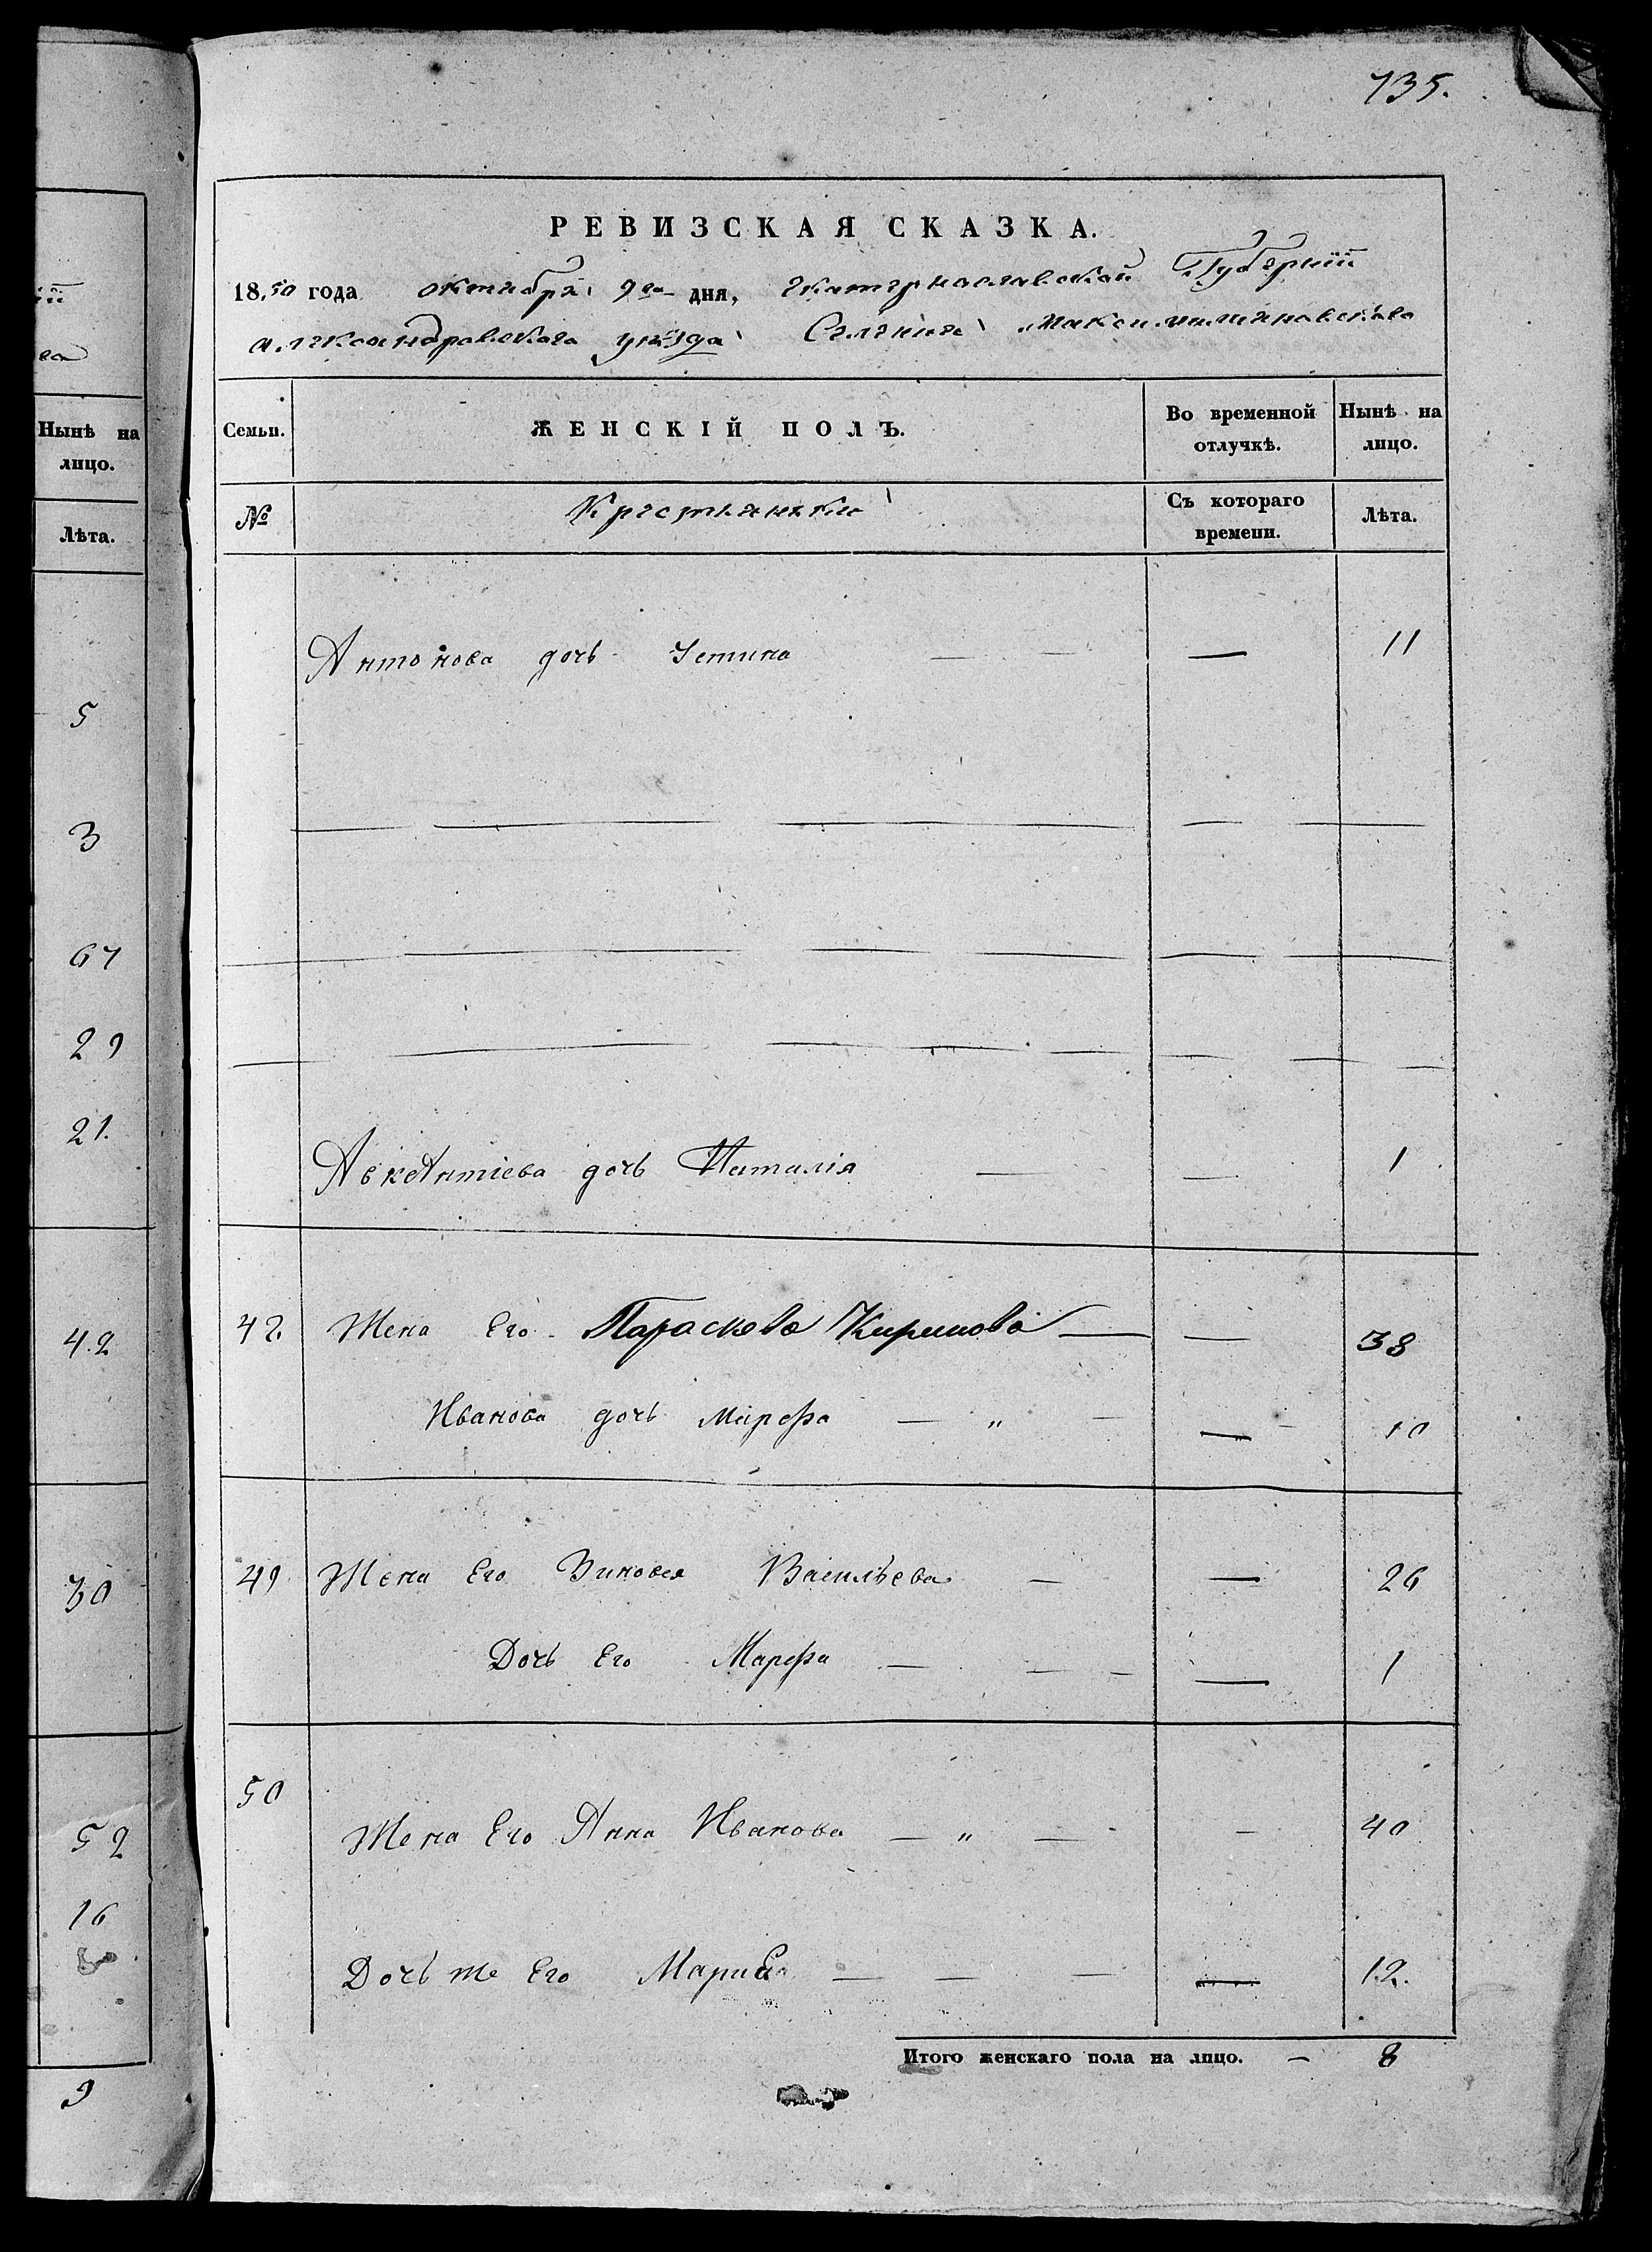 735.
РЕВИЗСКАЯ СКАЗКА.
1850 года октября 9го дня, Екатеринославской Губерніи
Александровскаго уѣзда Селенія Максимиліановскаго
Семьи. ЖЕНСКІЙ ПОЛЪ. Во временной отлучкѣ. Нынѣ на лицо.
№ Крестьянки Съ котораго времени. Лѣта.
Антонова дочь Устина — — — 11
Авксентіева дочь Наталія — — 1
48. Жена Его Параскева Киримова — — 38
Иванова дочь Марфа — „ — — 10
49 Жена Его Зиновея Васильева — — 26
Дочь Его Марфа — — — — 1
50
Жена Его Анна Иванова — „ — — 40
Дочь же Его Мария — — — — 12.
Итого женскаго пола на лицо. — 8
Нынѣ на
лицо.
Лѣта.
5
3
67
29
21.
42
30
52
16
9